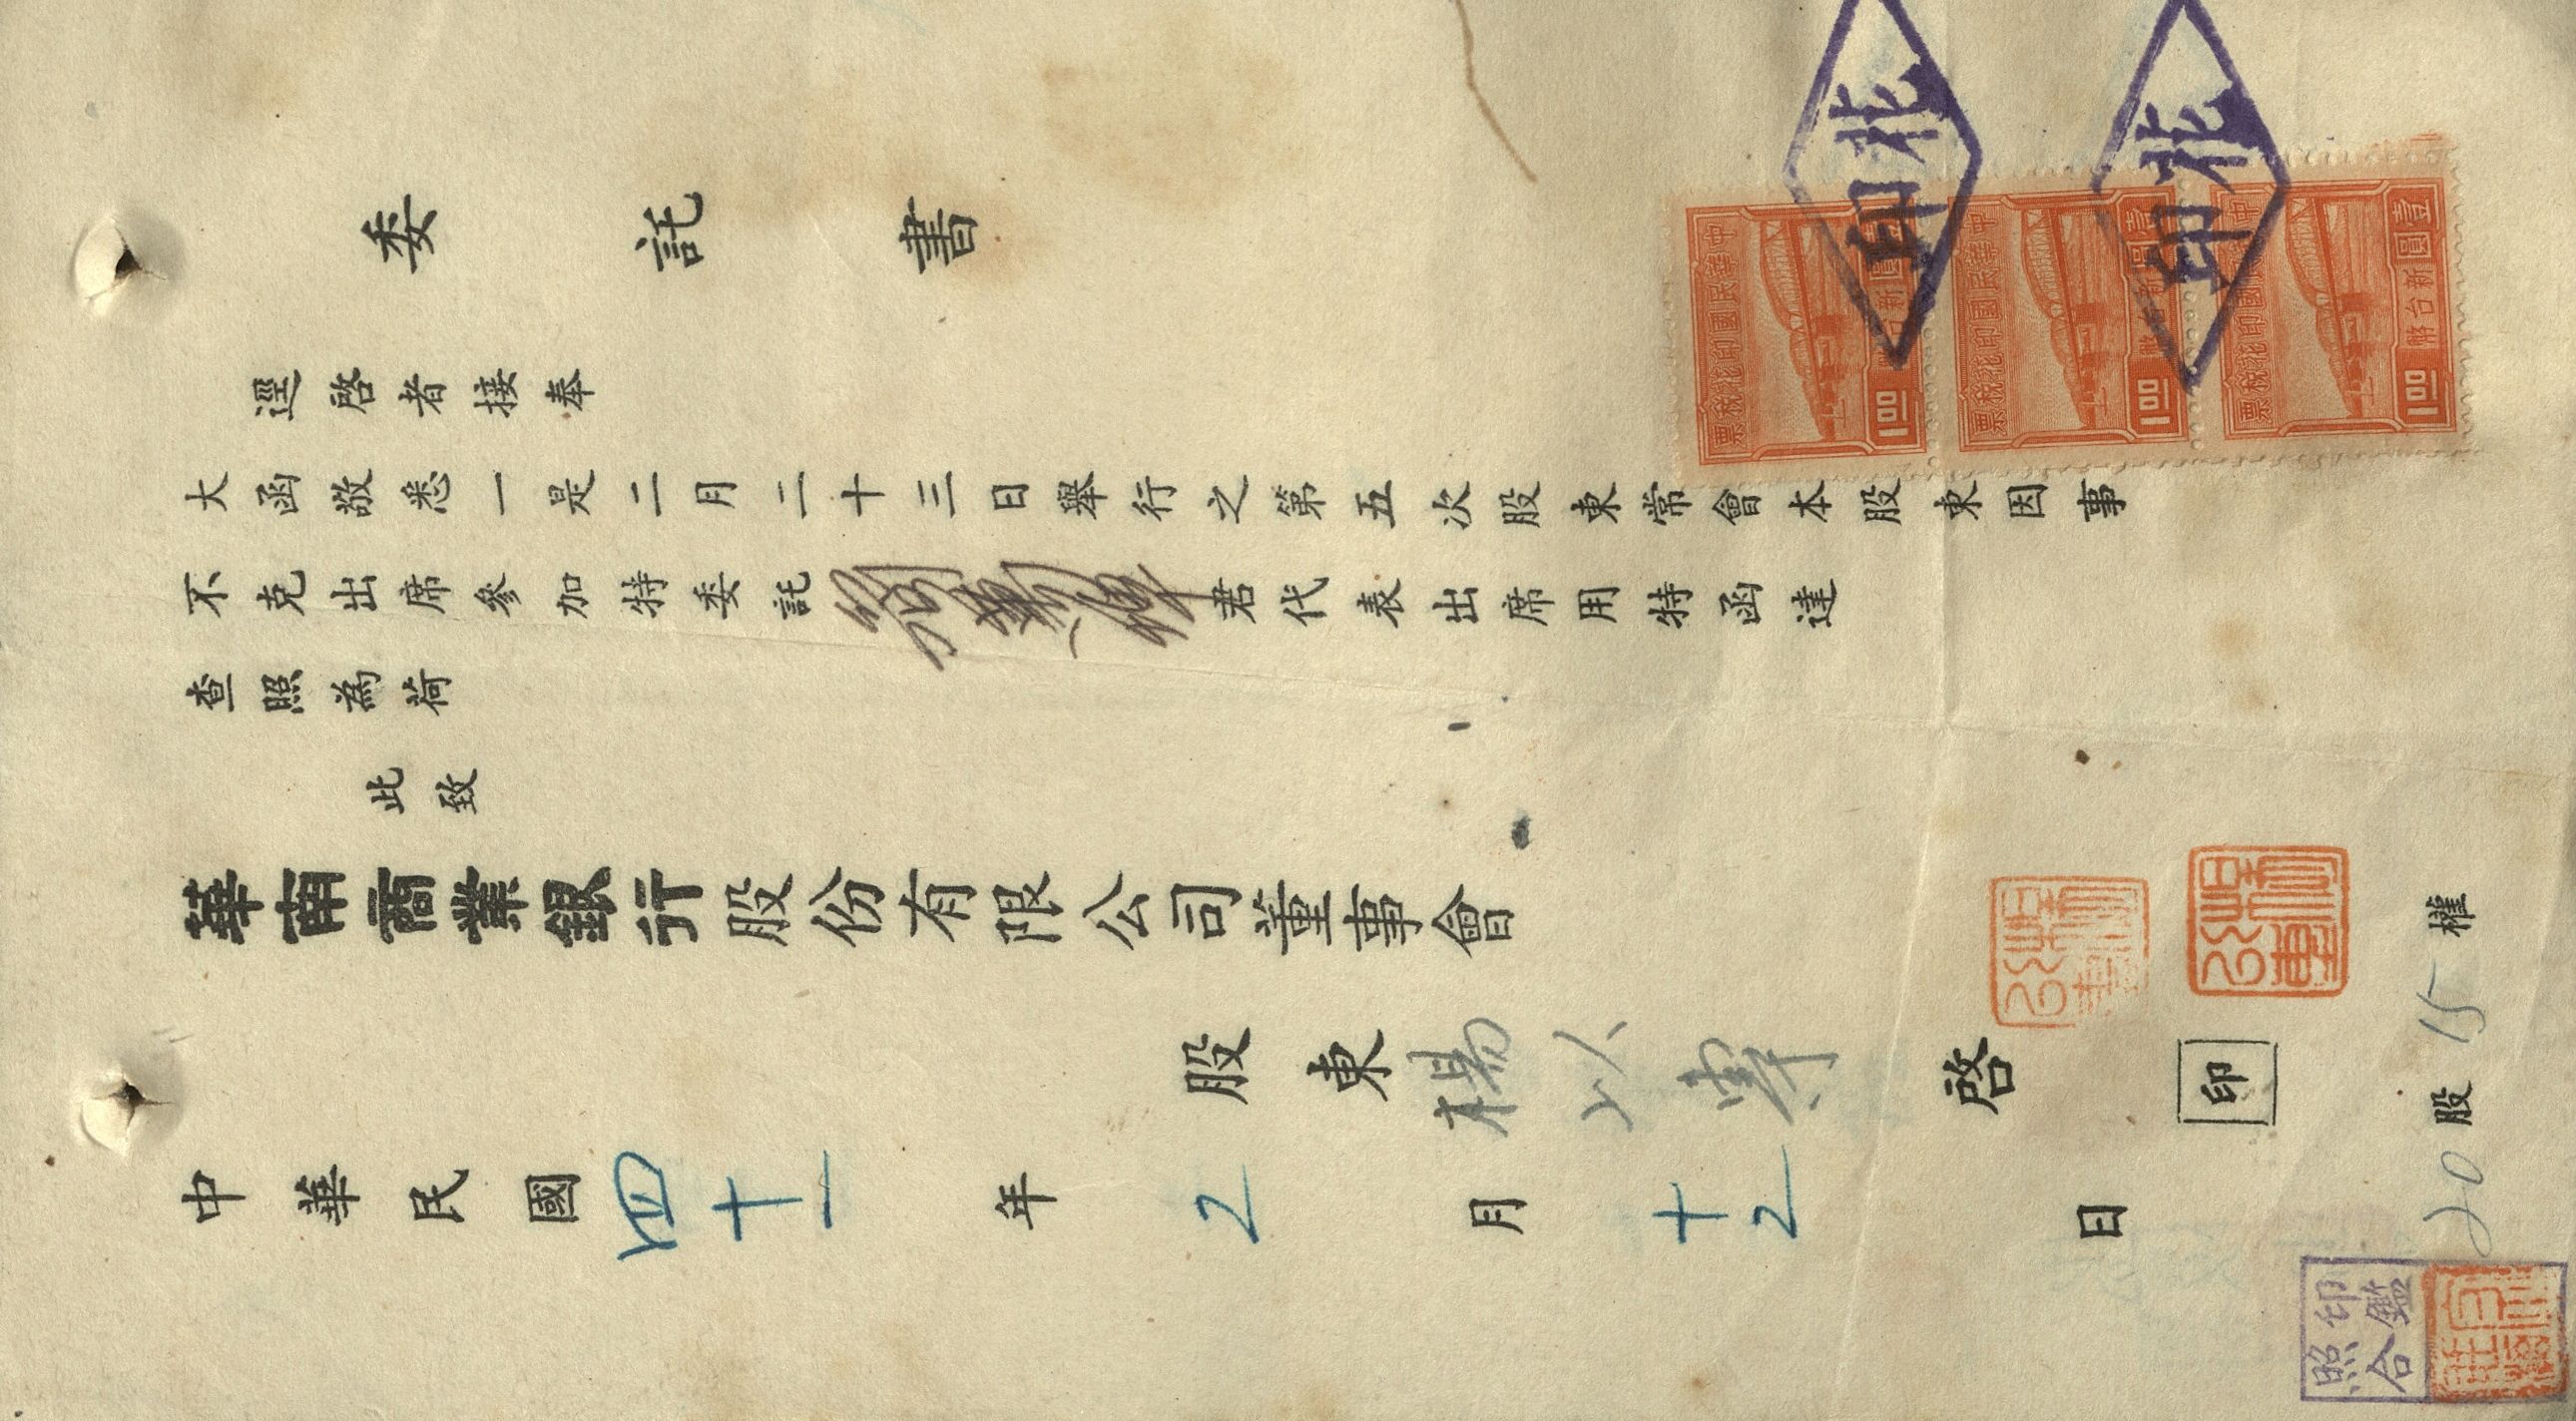 委託書
逕啓者接奉
大函敬悉一是二月二十三日舉行之第五次股東常會本股東因事
不克出席參加特委託君代表出席用特函達
查照為荷
此致
華南商業銀行股份有限公司董事會
股東楊以寧啓印
中華民國四十一年2月十2日
20股15權
印鑑
照合
印花
印花
中華民國印花稅票
壹圓
新台幣
1.00
中華民國印花稅票
壹圓
新台幣
1.00
中華民國印花稅票
壹圓
新台幣
1.00